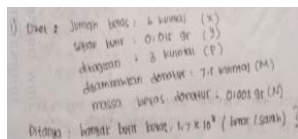 1) Diket : Jumlah beras : 6 kuintal (x)
setiap butir : 0.015 gr (y)
dibagikan : 3 kuintal (P)
disumbangkan donatur : 7.5 kuintal (M)
massa beras donatur : 0.005 gr (N)
Ditanya : banyak butir beras, 1.7 x 10⁸ (benar / salah)